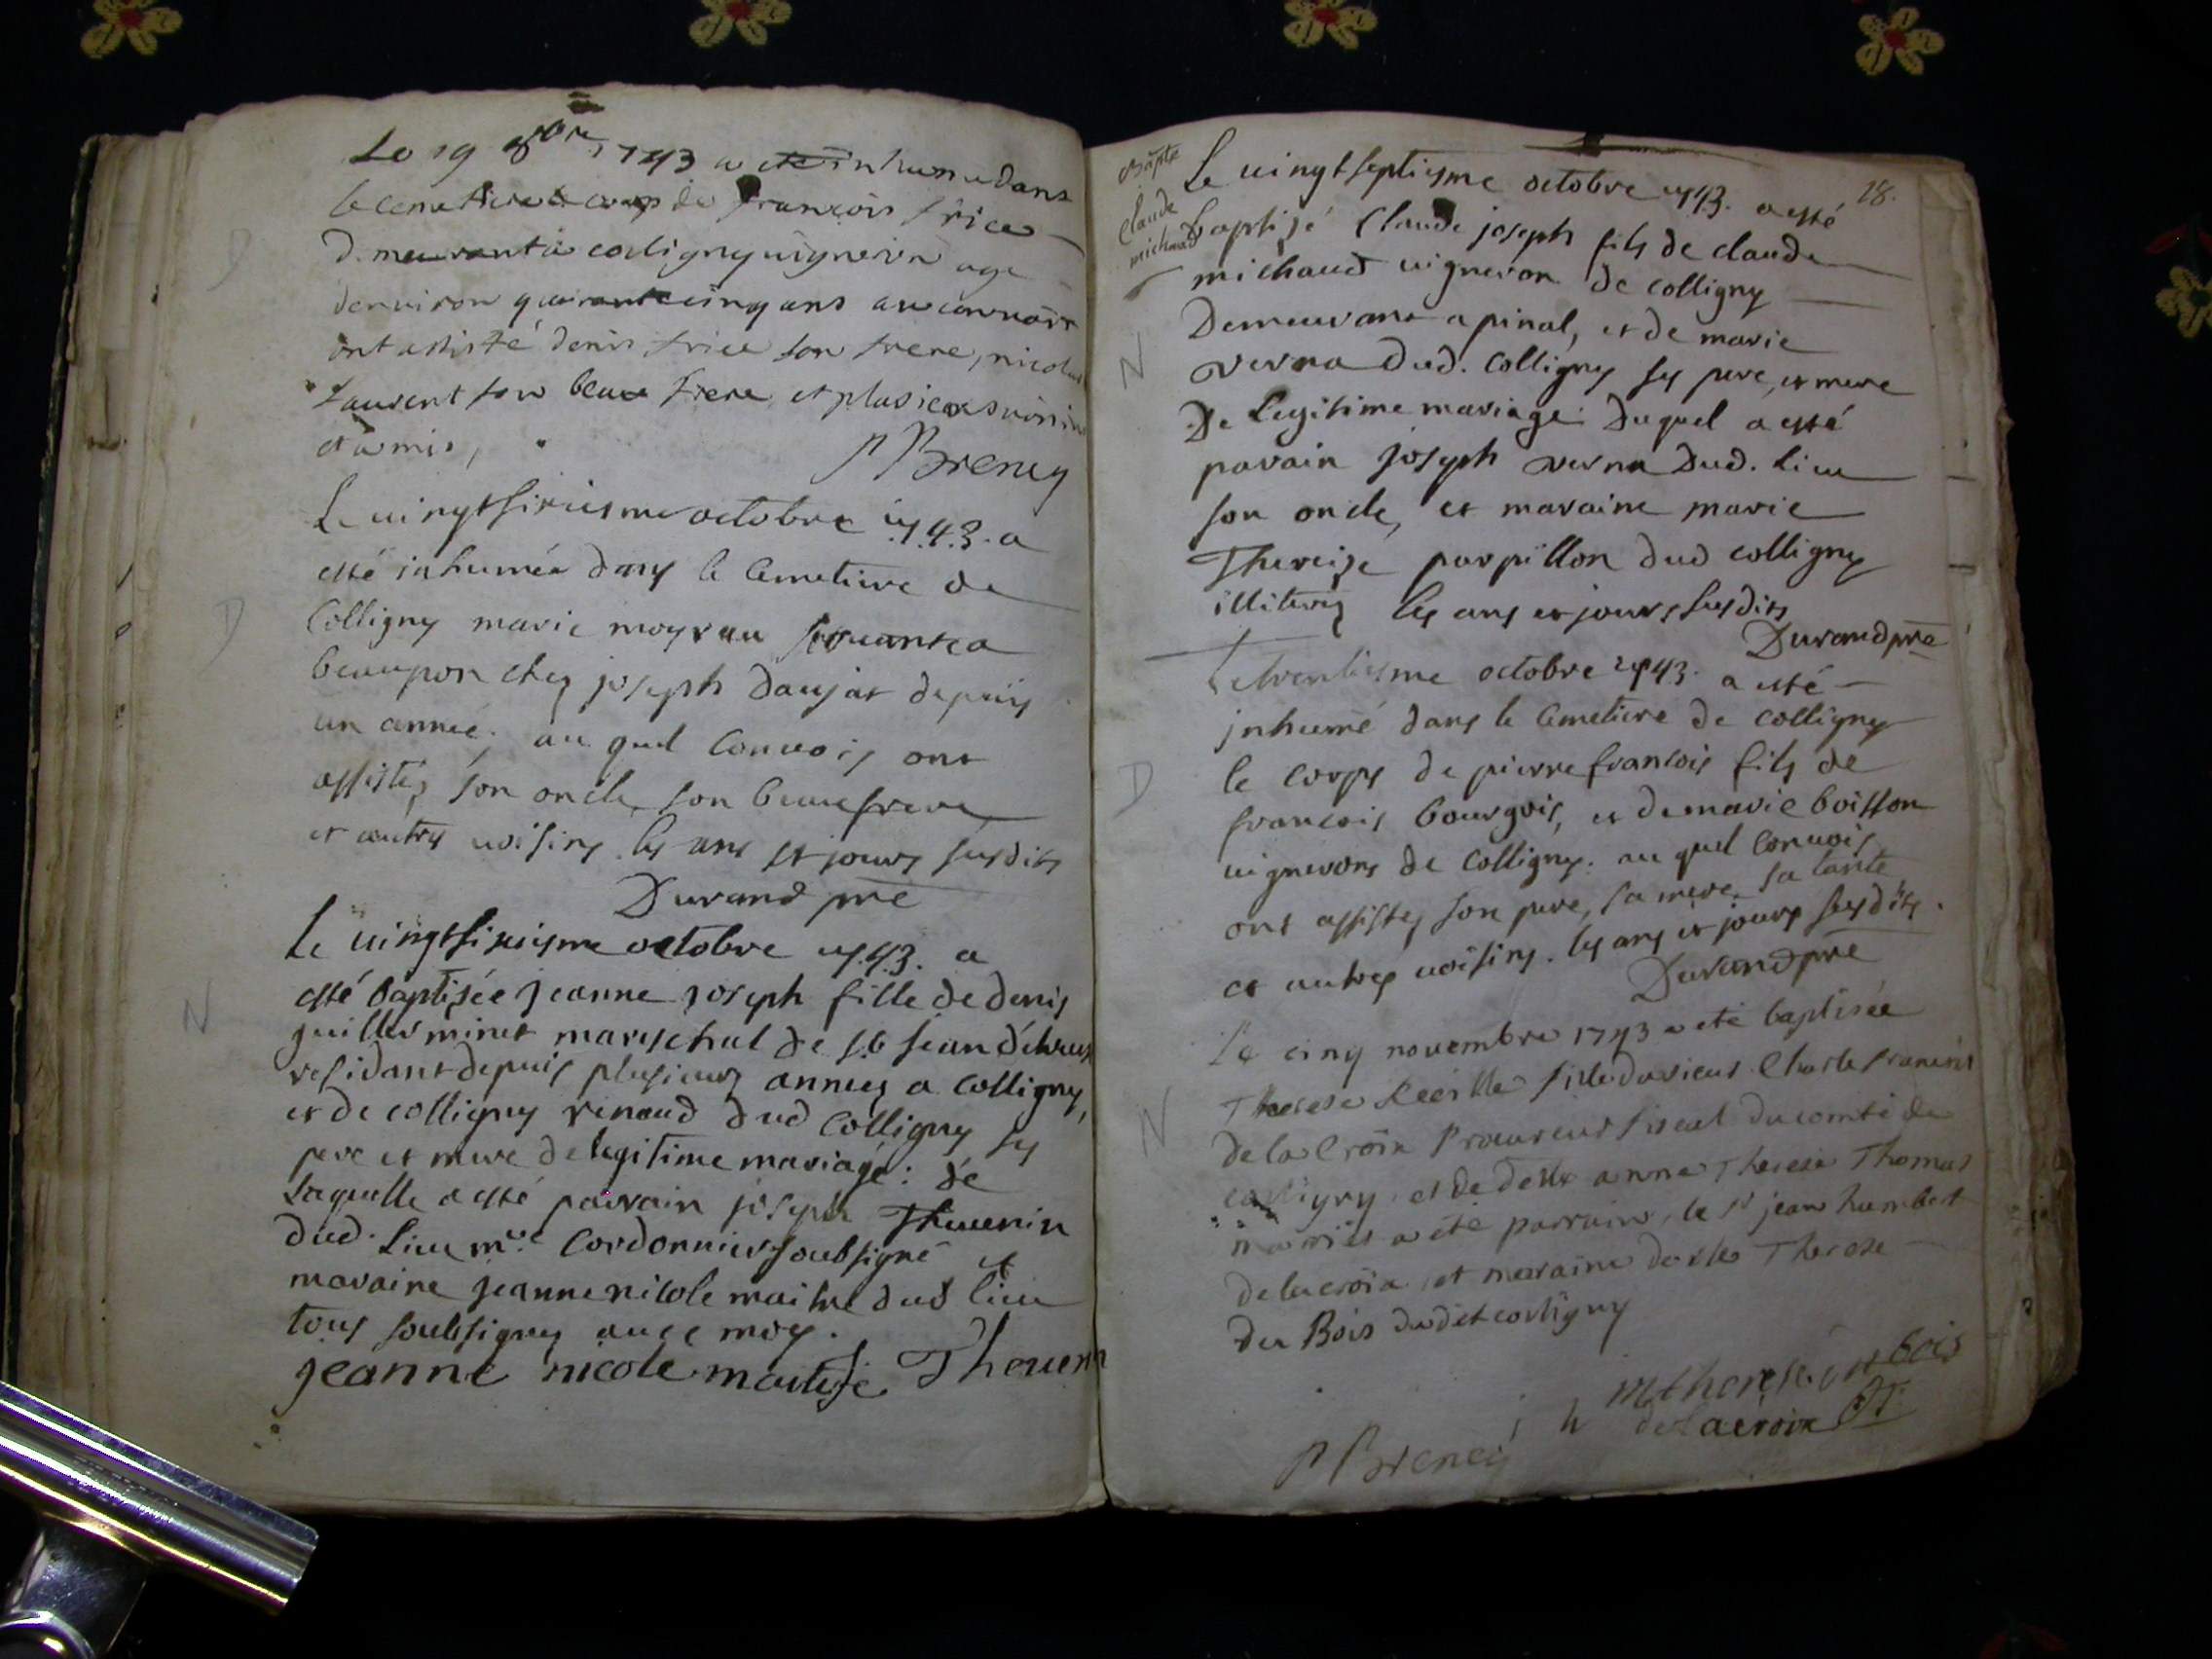 Le 19 8bre 1743 a ete inhumé dans
le cemetiere le corps de françois frice
demeurant a colligny vigneron agé
denviron quarante cinq ans au convoir
ont assisté denis frice son frere, nicolas
Laurent son beau frere et plusieurs voisins
et amis,
PBreney
Le vingt sixiesme octobre 1743. a
esté inhumée dans le Cemetiere de
Colligny marie moyrau servante a
beaupon chez joseph daujat depuis
un année; au quel Convois ont
assistéz son oncle, son beaufrere
et autres voisins les ans et jours susdits
Durand pre
Le vingt sixiesme octobre 1743. a
esté baptisée jeanne joseph fille de denis
guillerminet mareschal de st jean
residant depuis plusieurs années a Colligny,
et de colligny renaud dud Colligny ses
pere et mere de legitime mariage: de
laquelle a esté parrain joseph Thevenin
dud. Lieu mre Cordonnier soubsigné et
maraine jeanne nicole maitre dud lieu
tous soubsignez avec moy.
jeanne nicole Thevenin
Bapte
Claude
michaud
28.
Le vingt septiesme octobre 1743. a esté
baptisé Claude joseph fils de claude
michaud vigneron de colligny
Demeurant a pinal, et de marie
verna dud. Colligny ses pere, et mere
De Legitime mariage: Duquel a esté
parain joseph verna dud. Lieu
son oncle, et maraine marie
Thereize parpillon dud colligny
illiterez les ans et jours susdits
Durand pre
Le trentiesme octobre 1743. a esté
inhumé dans le Cemetiere de Colligny
le corps de pierre francois fils de
francois bourgois, et de marie boisson
vignerons de Colligny. au quel Convois
ont assistez son pere, sa mere, sa tante
et autres voisins. les ans et jours susdits.
Durand pre
Le cinq novembre 1743 a eté baptisée
Therese fille du sieur Charle francois
de la Croix Procureur fiscal du comté de
colligny et de delle anne Therese Thomas
mariés a eté parrain, le sr jean humbert
delacroix et maraine delle Therese
du Bois dudit colligny
m therese du bois
j h delacroix
PBreney